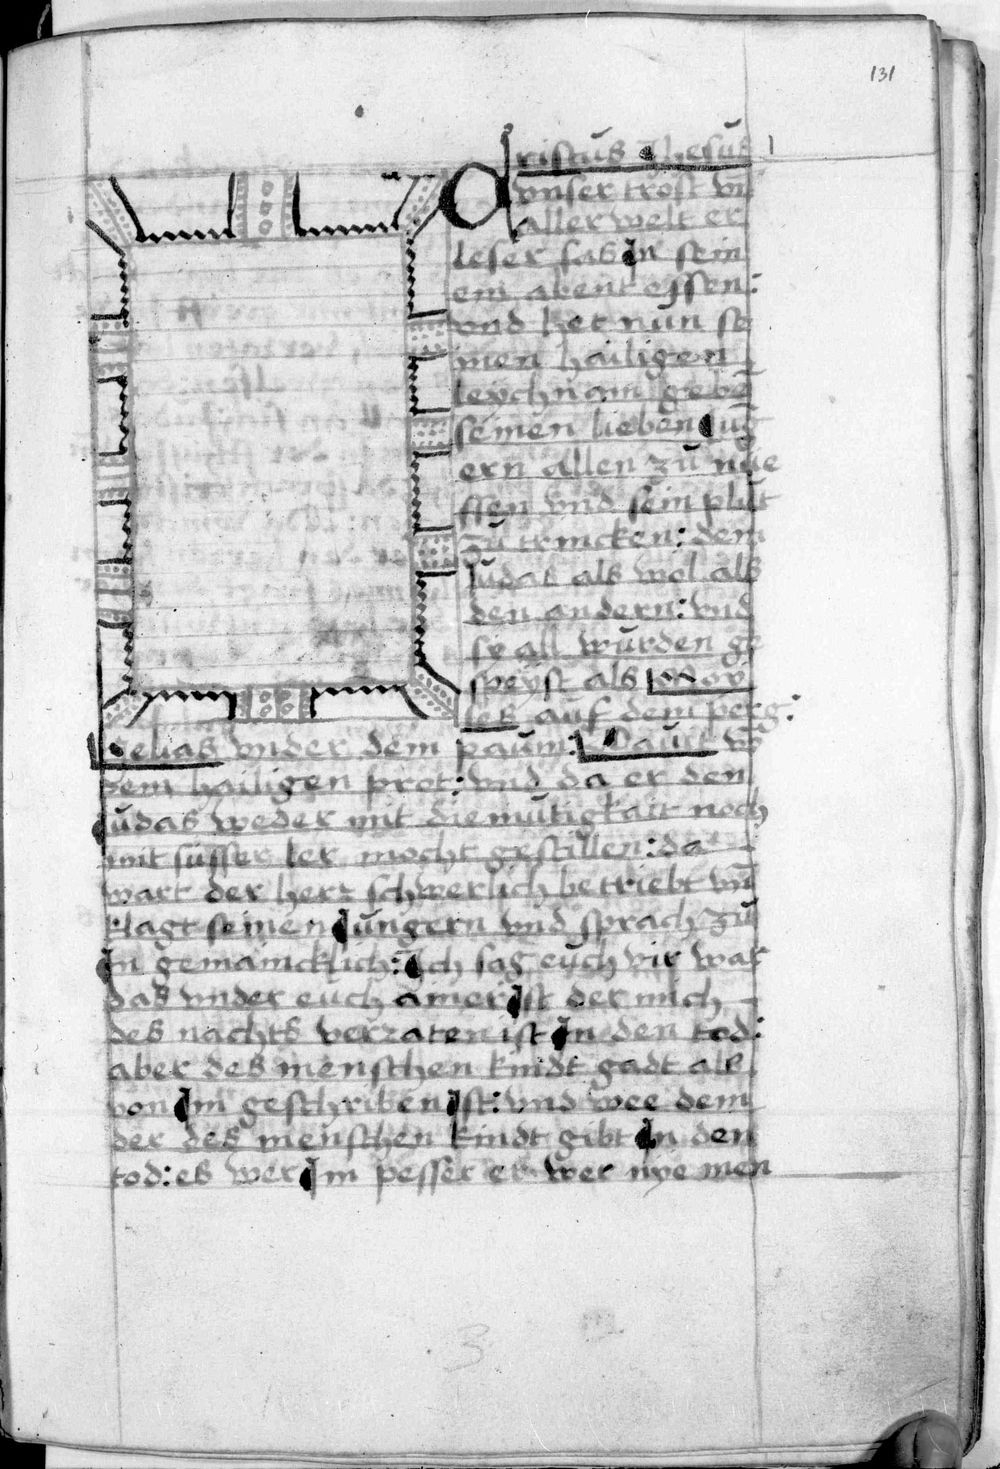 131
Cristus Jhesus
vnser trost vn̄
aller welt er
leser sas Jn sein
em abent essen:
vnd het nun se
inen hailigen
leychnam gebē
seinen lieben Jūg
ern allen zu nüe
ssen vnd sein plut
zu trincken: dem
Judas als wol als
den andern: vnd
sy all wurden ge
speyst als Moy
ses auf dem perg:
Helias vnder dem paum: Dauit vō
dem hailigen prot: vnd da er den
Judas weder mit diemutigkait noch
mit susser ler mocht gestillen: da
wart der herr schwerlich betriebt vn̄
klagt seinen Jungern vnd sprach zu
Jn gemaincklich: Jch sag euch vir war
das vnder euch ainer Jst der mich
des nachts verraten ist Jn den tod:
aber des menschen kindt gadt als
von Jm geschriben Jst: vnd wee dem
der des menschen kindt gibt Jn den
tod: es wer Jm pesser er wer nye men